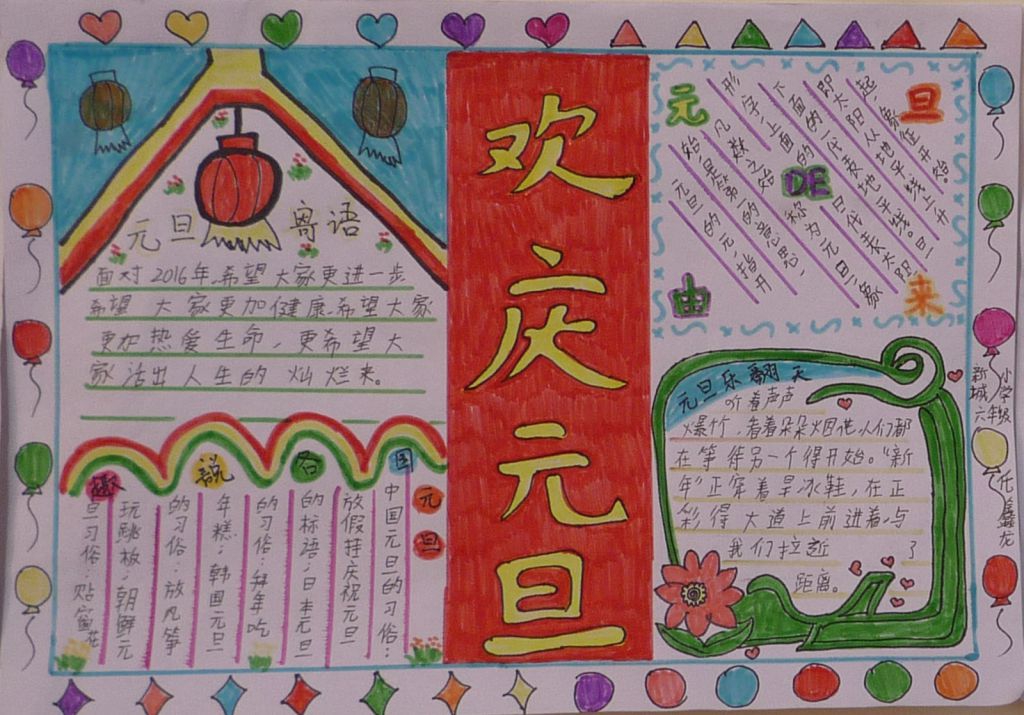 欢庆元旦
元旦寄语
面对2016年,希望大家更进一步
希望大家更加健康,希望大家
更加热爱生命,更希望大
家活出人生的灿烂来。
趣说各国元旦
中国元旦日的习俗:
放假挂庆祝元旦
的标语;日本元旦
的习俗:拜年吃
年糕;韩国元旦
的习俗:放风筝
玩跳板;朝鲜元
旦习俗:贴窗花
元旦DE由来
元旦的元,指开
始,是第一的意思,
凡数之始称为元旦;象
形字,上面的日代表太阳,
下面的一代表地平线。旦
即太阳从地平线上升
起,象征开始。
元旦乐翻天
听着声声
爆竹,看着朵朵烟花人们都
在等待另一个得开始。“新
年”正穿着旱冰鞋,在正
彩得大道上前进着,与
我们拉近了
距离。
新城小学
六年级
任鑫龙